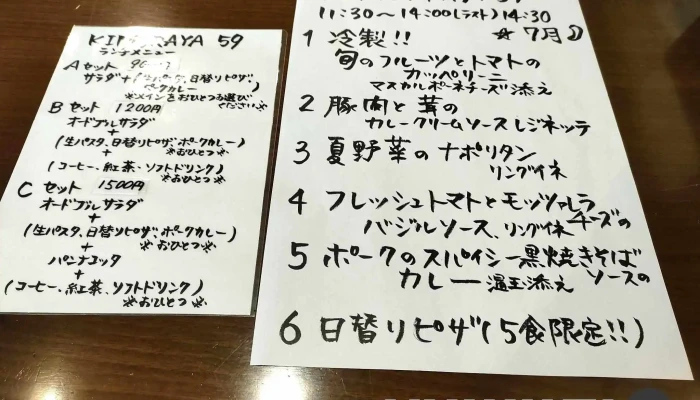 59
ランチメニュー
Aセット
サラダ+(生パスタ、日替リピザ、
ポークカレー)
※メインをおひとつお選び
ください※
Bセット 1200円
オードブルサラダ
+
(生パスタ、日替リピザ、ポークカレー)
※おひとつ※
+
(コーヒー、紅茶、ソフトドリンク)
※おひとつ※
Cセット 1500円
オードブルサラダ
+
(生パスタ、日替リピザ、ポークカレー)
※おひとつ※
+
パンナコッタ
+
(コーヒー、紅茶、ソフトドリンク)
※おひとつ※
11:30~14:00(ラスト)14:30
☆7月☽
1 冷製!!
旬のフルーツとトマトの
カッペリーニ
マスカルポーネチーズ添え
2 豚肉と茸の
カレークリームソースレジネッテ
3 夏野菜のナポリタン
リングイネ
4 フレッシュトマトとモッツァレラ
チーズの
バジルソース、リングイネ
5 ポークのスパイシー黒焼きそば
ソースの
カレー温玉添え
6 日替リピザ(5食限定!!)